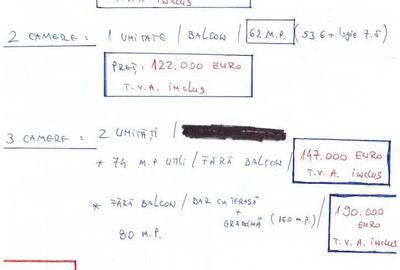 2 CAMERE: 1 UNITATE / BALCON / 62 M.P. ( 53.6 + logie 7.5)
PREȚ: 122.000 EURO
T.V.A. inclus
3 CAMERE: 2 UNITĂȚI /
* 74 M.P UTILI / FĂRĂ BALCON / 147.000 EURO
T.V.A. inclus
* FĂRĂ BALCON / DAR CU TERASĂ + GRĂDINĂ (150 M.P.) / 190.000 EURO
80 M.P. T.V.A. inclus